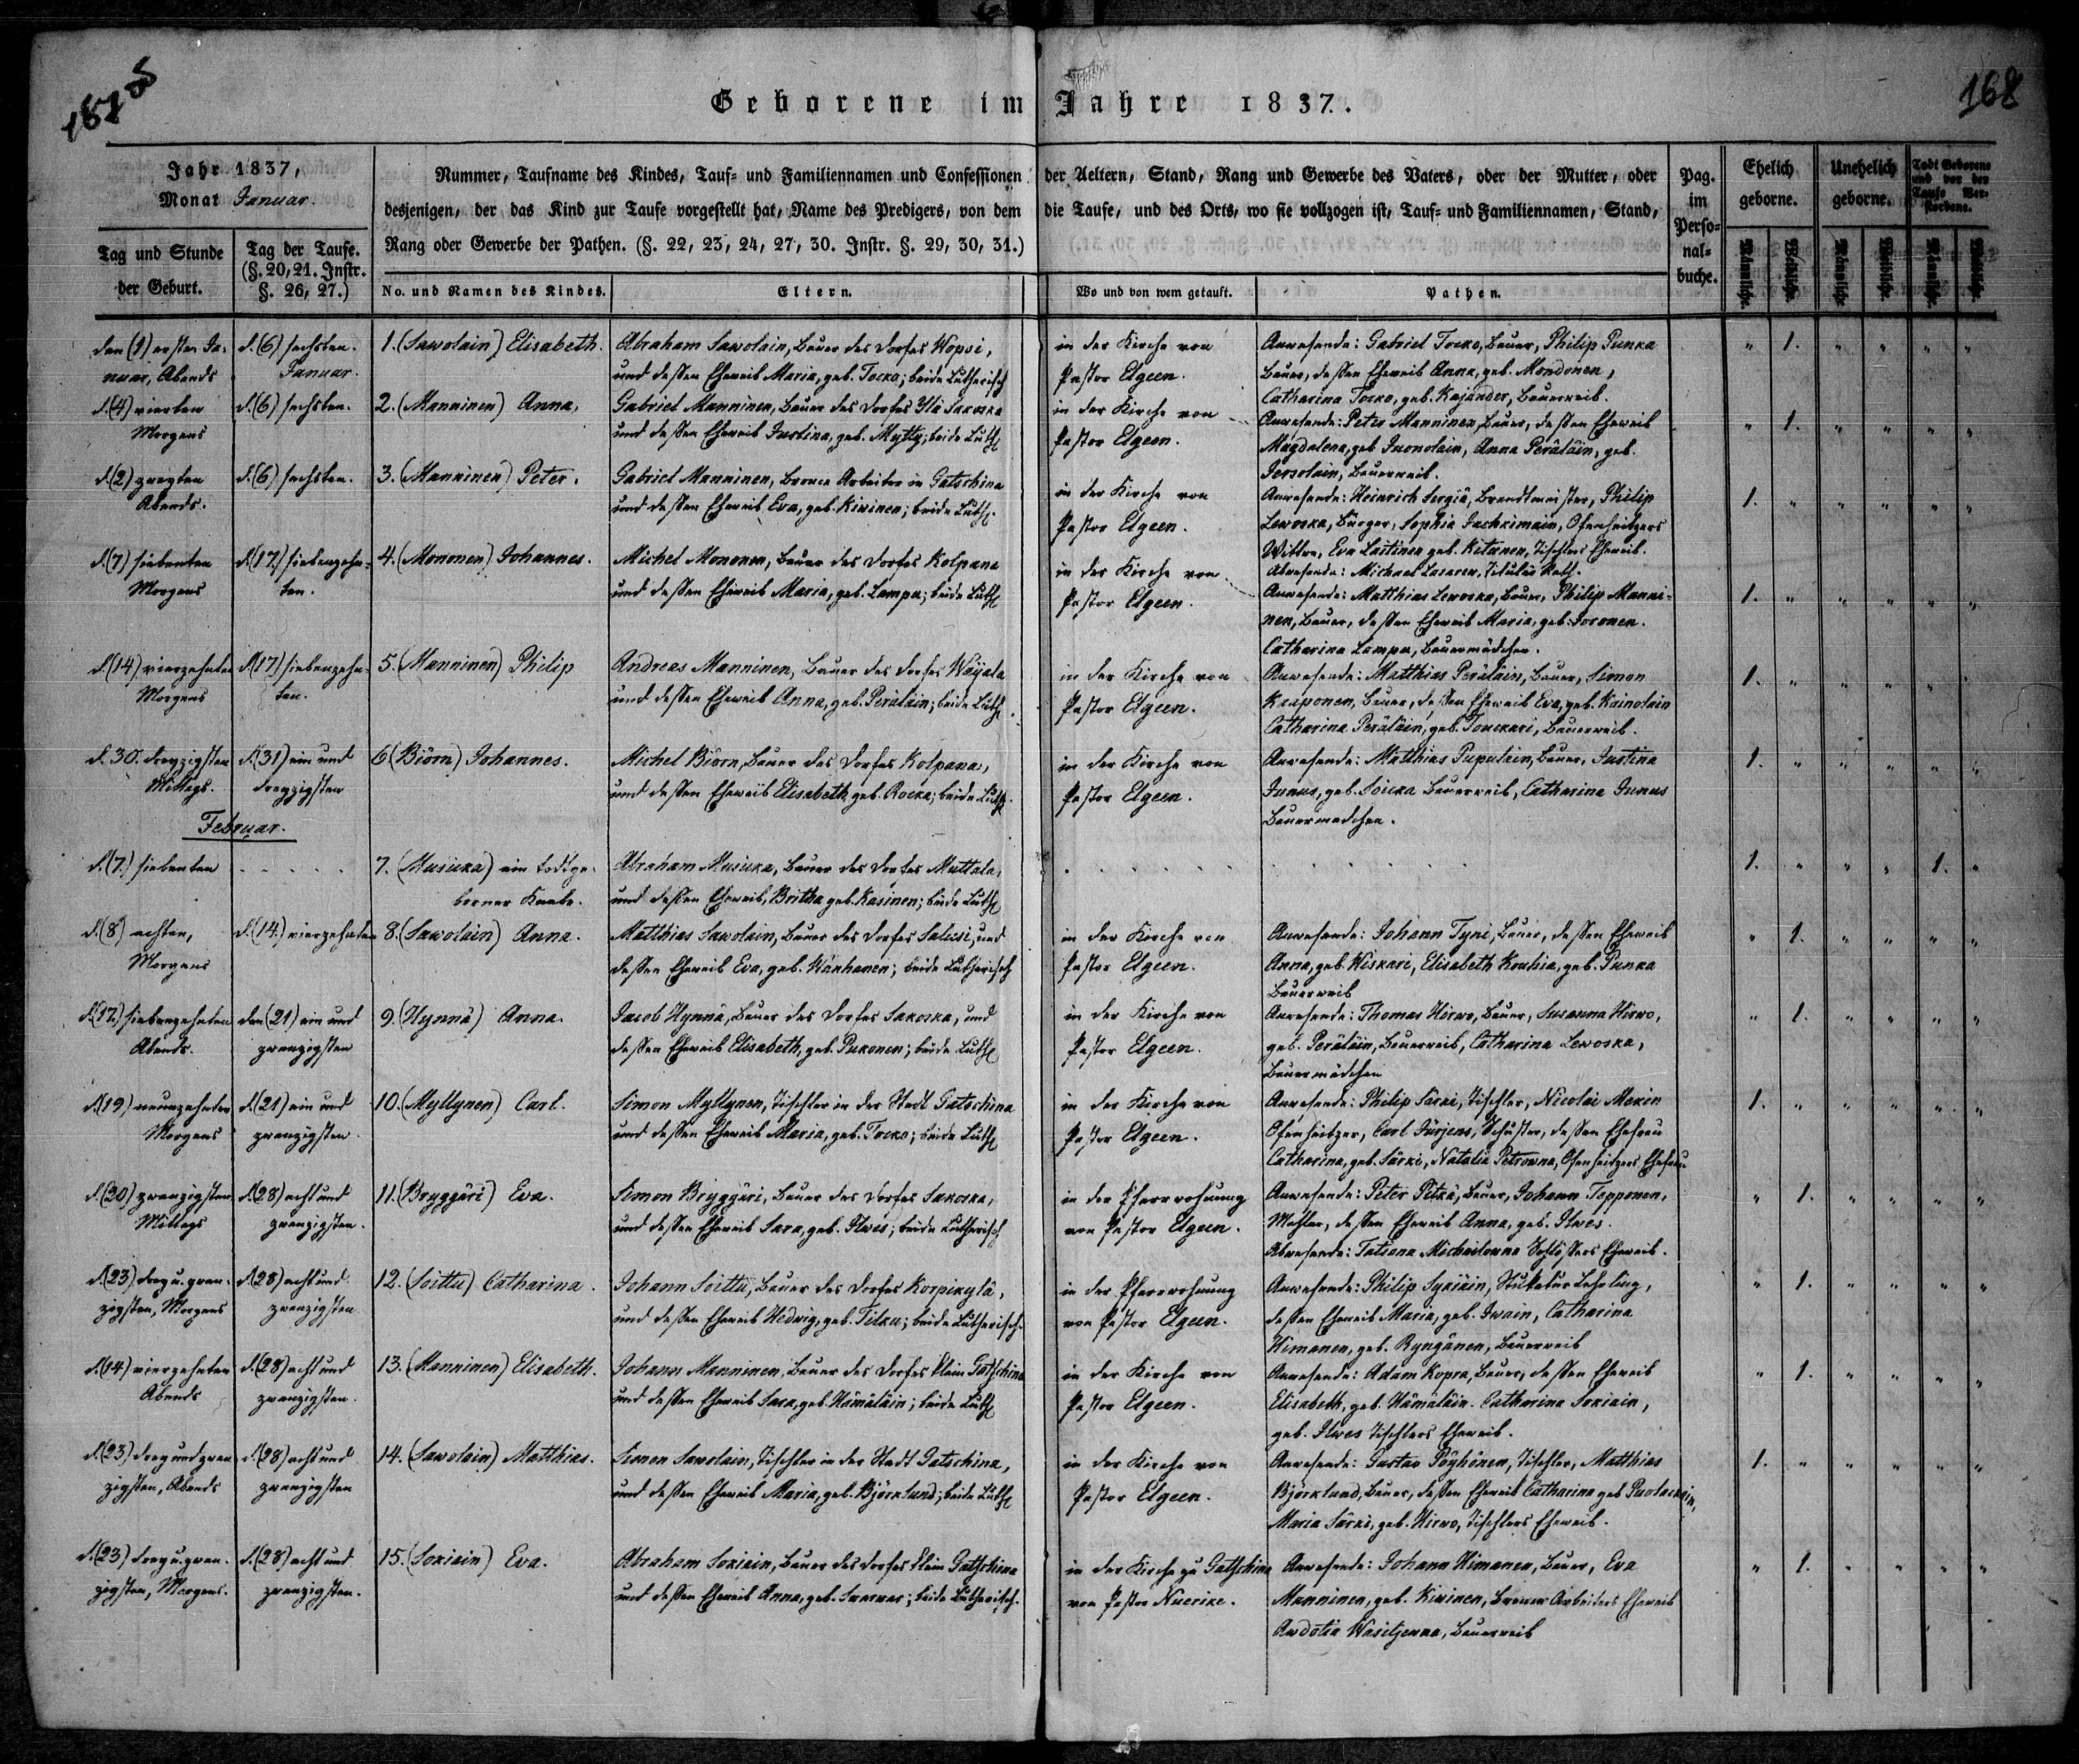 168
Geborene im Jahre 1837.
Jahr 1837,
Monat Januar.
Tag und Stunde der Geburt.
Tag der Taufe. (§. 20, 21. Instr. §. 26, 27.)
Nummer, Taufname des Kindes, Tauf- und Familiennamen und Confessionen der Aeltern, Stand, Rang und Gewerbe des Vaters, oder der Mutter, oder
desjenigen, der das Kind zur Taufe vorgestellt hat, Name des Predigers, von dem die Taufe, und des Orts, wo sie vollzogen ist, Tauf- und Familiennamen, Stand,
Rang oder Gewerbe der Pathen. (§. 22, 23, 24, 27, 30. Instr. §. 29, 30, 31.)
No. und Namen des Kindes.
Eltern.
Wo und von wem getauft.
Pathen.
Pag. im Perso-nal-buche.
Ehelich geborne.
Unehelich geborne.
Todt Geborene und vor der Taufe Ver-storbene.
Männliche. Weibliche. Männliche. Weibliche. Männliche. Weibliche.
den (1) ersten Ja-
nuar, Abends
d. (6) sechsten.
Januar.
1. (Sawolain) Elisabeth.
Abraham Sawolain, Bauer des Dorfes Wopsi,
und dessen Eheweib Maria, geb. Tocko; beide Lutherisch
in der Kirche von
Pastor Elgeen.
Anwesende: Gabriel Tocko, Bauer, Philip Punka
Bauer, dessen Eheweib Anna, geb. Mondonen,
Catharina Tocko, geb. Kajander, Bauerweib.
" 1. " " " "
d. (4) vierten
Morgens
d. (6) sechsten.
2. (Manninen) Anna,
Gabriel Manninen, Bauer des Dorfes Ylä Sakoska
und dessen Eheweib Justina, geb. Mytty; beide Luth
in der Kirche von
Pastor Elgeen.
Anwesende: Peter Manninen, Bauer, dessen Eheweib
Magdalena, geb. Suonolain, Anna Peräläin, geb.
Bauerweib.
" 1. " " " "
d. (2) zweyten
Abends.
d. (6) sechsten.
3. (Manninen) Peter.
Gabriel Manninen, Arbeiter in Gatschina
und dessen Eheweib Eva, geb. Kirinen; beide Luth.
in der Kirche von
Pastor Elgeen.
Anwesende: Heinrich Sergiä, Brandtmeister, Philip
Lewoska, Bürger, Sophia Ofenheitzers
Wittwe, Eva Lastinen geb. Tischlers Eheweib.
Abwesende: Michael Lasarew, Titulär Rath.
1. " " " " "
d. (7) siebenten
Morgens
d. (17.) siebenzehn-
ten.
4. (Mononen) Johannes.
Michel Mononen, Bauer des Dorfes Kolpana
und dessen Eheweib Maria, geb. Lampu; beide Luth
in der Kirche von
Pastor Elgeen.
Anwesende: Matthias Lewoska, Bauer, Philip Manni-
nen, Bauer, dessen Eheweib Maria, geb. Soronen.
Catharina Lampu, Bauermädchen.
1. " " " " "
d. (14) vierzehnten
Morgens
d. (17) siebenzehn-
ten.
5. (Manninen) Philip
Andreas Manninen, Bauer des Dorfes Wäyala
und dessen Eheweib Anna, geb. Peräläin; beide Luth
in der Kirche von
Pastor Elgeen.
Anwesende: Matthias Peräläin, Bauer, Simon
Kaaponen, Bauer, dessen Eheweib Eva, geb. Kainolain
Catharina Peräläin, geb. Touckari, Bauerweib.
1. " " " " "
d. 30. dreyzigsten
Mittags.
d. (31) ein und
dreyzigsten
6 (Biörn) Johannes.
Michel Biörn, Bauer des Dorfes Kolpana,
und dessen Eheweib Elisabeth, geb. Rocka; beide Luth.
in der Kirche von
Pastor Elgeen.
Anwesende: Matthias Puputain, Bauer, Justina
Junus, geb. Soicka Bauerweib, Catharina Junus
Bauermadchen.
1. " " " " "
Februar.
d. (7.) siebenten
7. (Musuka) ein todtge-
borner Knabe.
Abraham Musuka, Bauer des Dorfes Muttala,
und dessen Eheweib, Britha geb. Kasinen; beide Luth
1. " " " 1. "
d. (8) achten,
Morgens
d. (14.) vierzehnten
8. (Sawolain) Anna.
Matthias Sawolain, Bauer des Dorfes Salusi, und
dessen Eheweib Eva, geb. Wänhanen; beide Lutherisch
in der Kirche von
Pastor Elgeen.
Anwesende: Johann Tyni, Bauer, dessen Eheweib
Anna, geb. Wiskari, Elisabeth Kouhia, geb. Punka
Bauerweib
" 1. " " " "
d. (17.) siebenzehnten
Abends.
den (21) ein und
zwanzigsten
9. (Hynnä) Anna.
Jacob Hynnä, Bauer des Dorfes Sakoska, und
dessen Eheweib Elisabeth, geb. Pukonen; beide Luth
in der Kirche von
Pastor Elgeen.
Anwesende: Thomas Hirwo, Bauer, Susanna Hirwo,
geb. Peräläin, Bauerweib, Catharina Lewoska,
Bauermädchen
" 1. " " " "
d. (19) neunzehnten
Morgens
d. (21) ein und
zwanzigsten.
10. (Myllynen) Carl.
Simon Myllynen, Tischler in der Stadt Gatschina
und dessen Eheweib Maria, geb. Tocko; beide Luth
in der Kirche von
Pastor Elgeen.
Anwesende: Philip Särki, Tischler, Nicolai Mekin
Ofenheitzer, Carl Jürjens, Schuster, dessen Ehefrau
Catharina, geb. Särki, Natalia Petrowna, Ofenheitzers Ehefrau
1. " " " " "
d. (20) zwanzigsten
Mittags
d. (28) acht und
zwanzigsten.
11. (Bryggäri) Eva.
Simon Bryggäri, Bauer des Dorfes Sakoska,
und dessen Eheweib Sara, geb. Ilwes; beide Lutherisch
in der Pfarrwohnung
von Pastor Elgeen.
Anwesende: Peter Pitkä, Bauer, Johann Tepponen,
Mahler, dessen Eheweib Anna, geb. Ilwes.
Abwesende: Tatiana Michailowna Schlössers Eheweib.
" 1. " " " "
d. (23) drey u. zwan-
zigsten, Morgens
d. (28) acht und
zwanzigsten
12. (Soittu) Catharina.
Johann Soittu, Bauer des Dorfes Korpikylä,
und dessen Eheweib Hedwig, geb. Titka; beide Lutherisch.
in der Pfarrwohnung
von Pastor Elgeen.
Anwesende: Philip Sykiäin, Stukatur Lehrling,
dessen Eheweib Maria, geb. Iwain, Catharina
Himanen, geb. Ryngänen, Bauerweib
" 1. " " " "
d. (14) vierzehnten
Abends
d. (28) acht und
zwanzigsten.
13. (Manninen) Elisabeth.
Johann Manninen, Bauer des Dorfes Klein Gatschina
und dessen Eheweib Sara, geb. Hämäläin; beide Luth
in der Kirche von
Pastor Elgeen.
Anwesende: Adam Kopra, Bauer, dessen Eheweib
Elisabeth, geb. Hämäläin. Catharina Sokiain,
geb. Ilwes Tischlers Eheweib.
" 1. " " " "
d. (23) drey und zwan
zigsten, Abends
d. (28) acht und
zwanzigsten
14. (Sawolain) Matthias.
Simon Sawolain, Tischler in der Stadt Gatschina,
und dessen Eheweib Maria, geb. Björklund; beide Luth
in der Kirche von
Pastor Elgeen.
Anwesende: Gustav Pöyhönen, Tischler, Matthias
Björklund, Bauer, dessen Eheweib Catharina geb
Maria Särki, geb. Hirwo, Tischlers Eheweib.
1. " " " " "
d. (23) drey u. zwan-
zigsten, Morgens.
d. (28) acht und
zwanzigsten.
15. (Sokiain) Eva.
Abraham Sokiain, Bauer des Dorfes Klein Gatschina
und dessen Eheweib Anna, geb. beide Lutherisch.
in der Kirche zu Gatschina
von Pastor Nuerike.
Anwesende: Johann Himanen, Bauer, Eva
Manninen, geb. Kirinen, Arbeiters Eheweib
Awdotia Wasiljewna, Bauerweib
" 1. " " " "